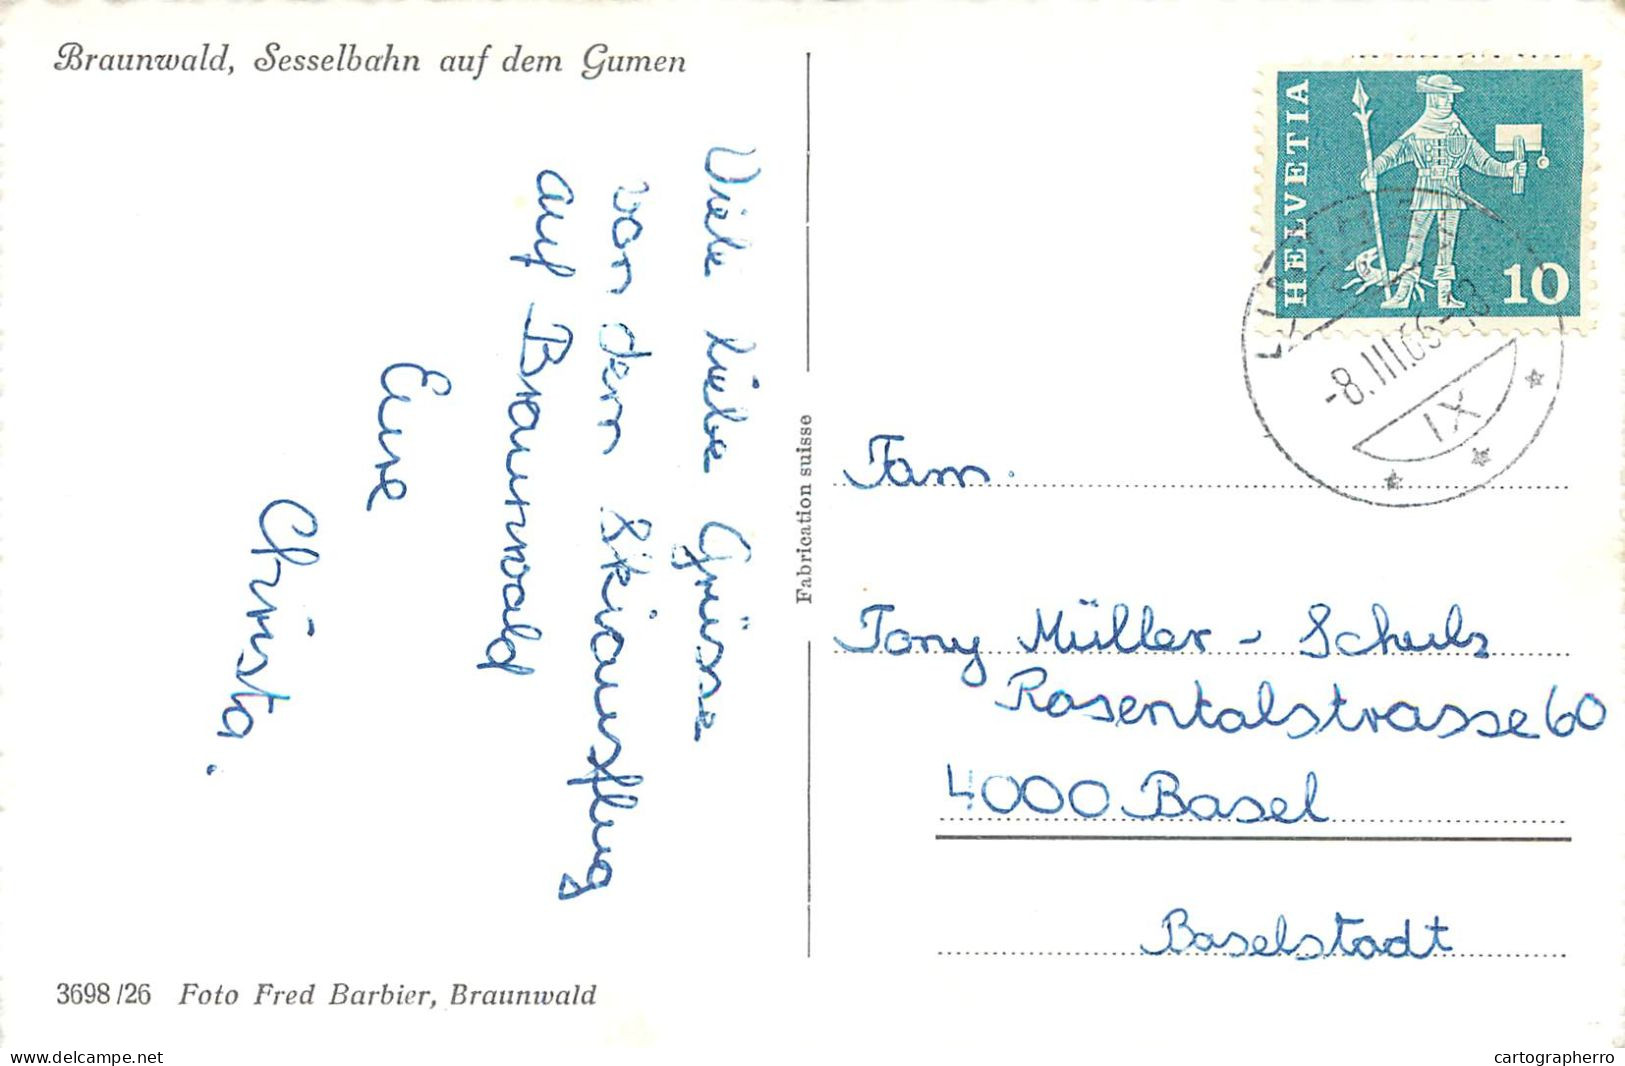 Braunwald, Sesselbahn auf dem Gumen
Viele liebe Grüsse
von dem Skiausflug
auf Braunwald
Eure
Christa.
3698/26 Foto Fred Barbier, Braunwald
Fabrication suisse
HELVETIA
10
-8.III.66-18
IX
Fam.
Tony Müller - Schulz
Rosentalstrasse 60
4000 Basel
Baselstadt
www.delcampe.net
cartographerro